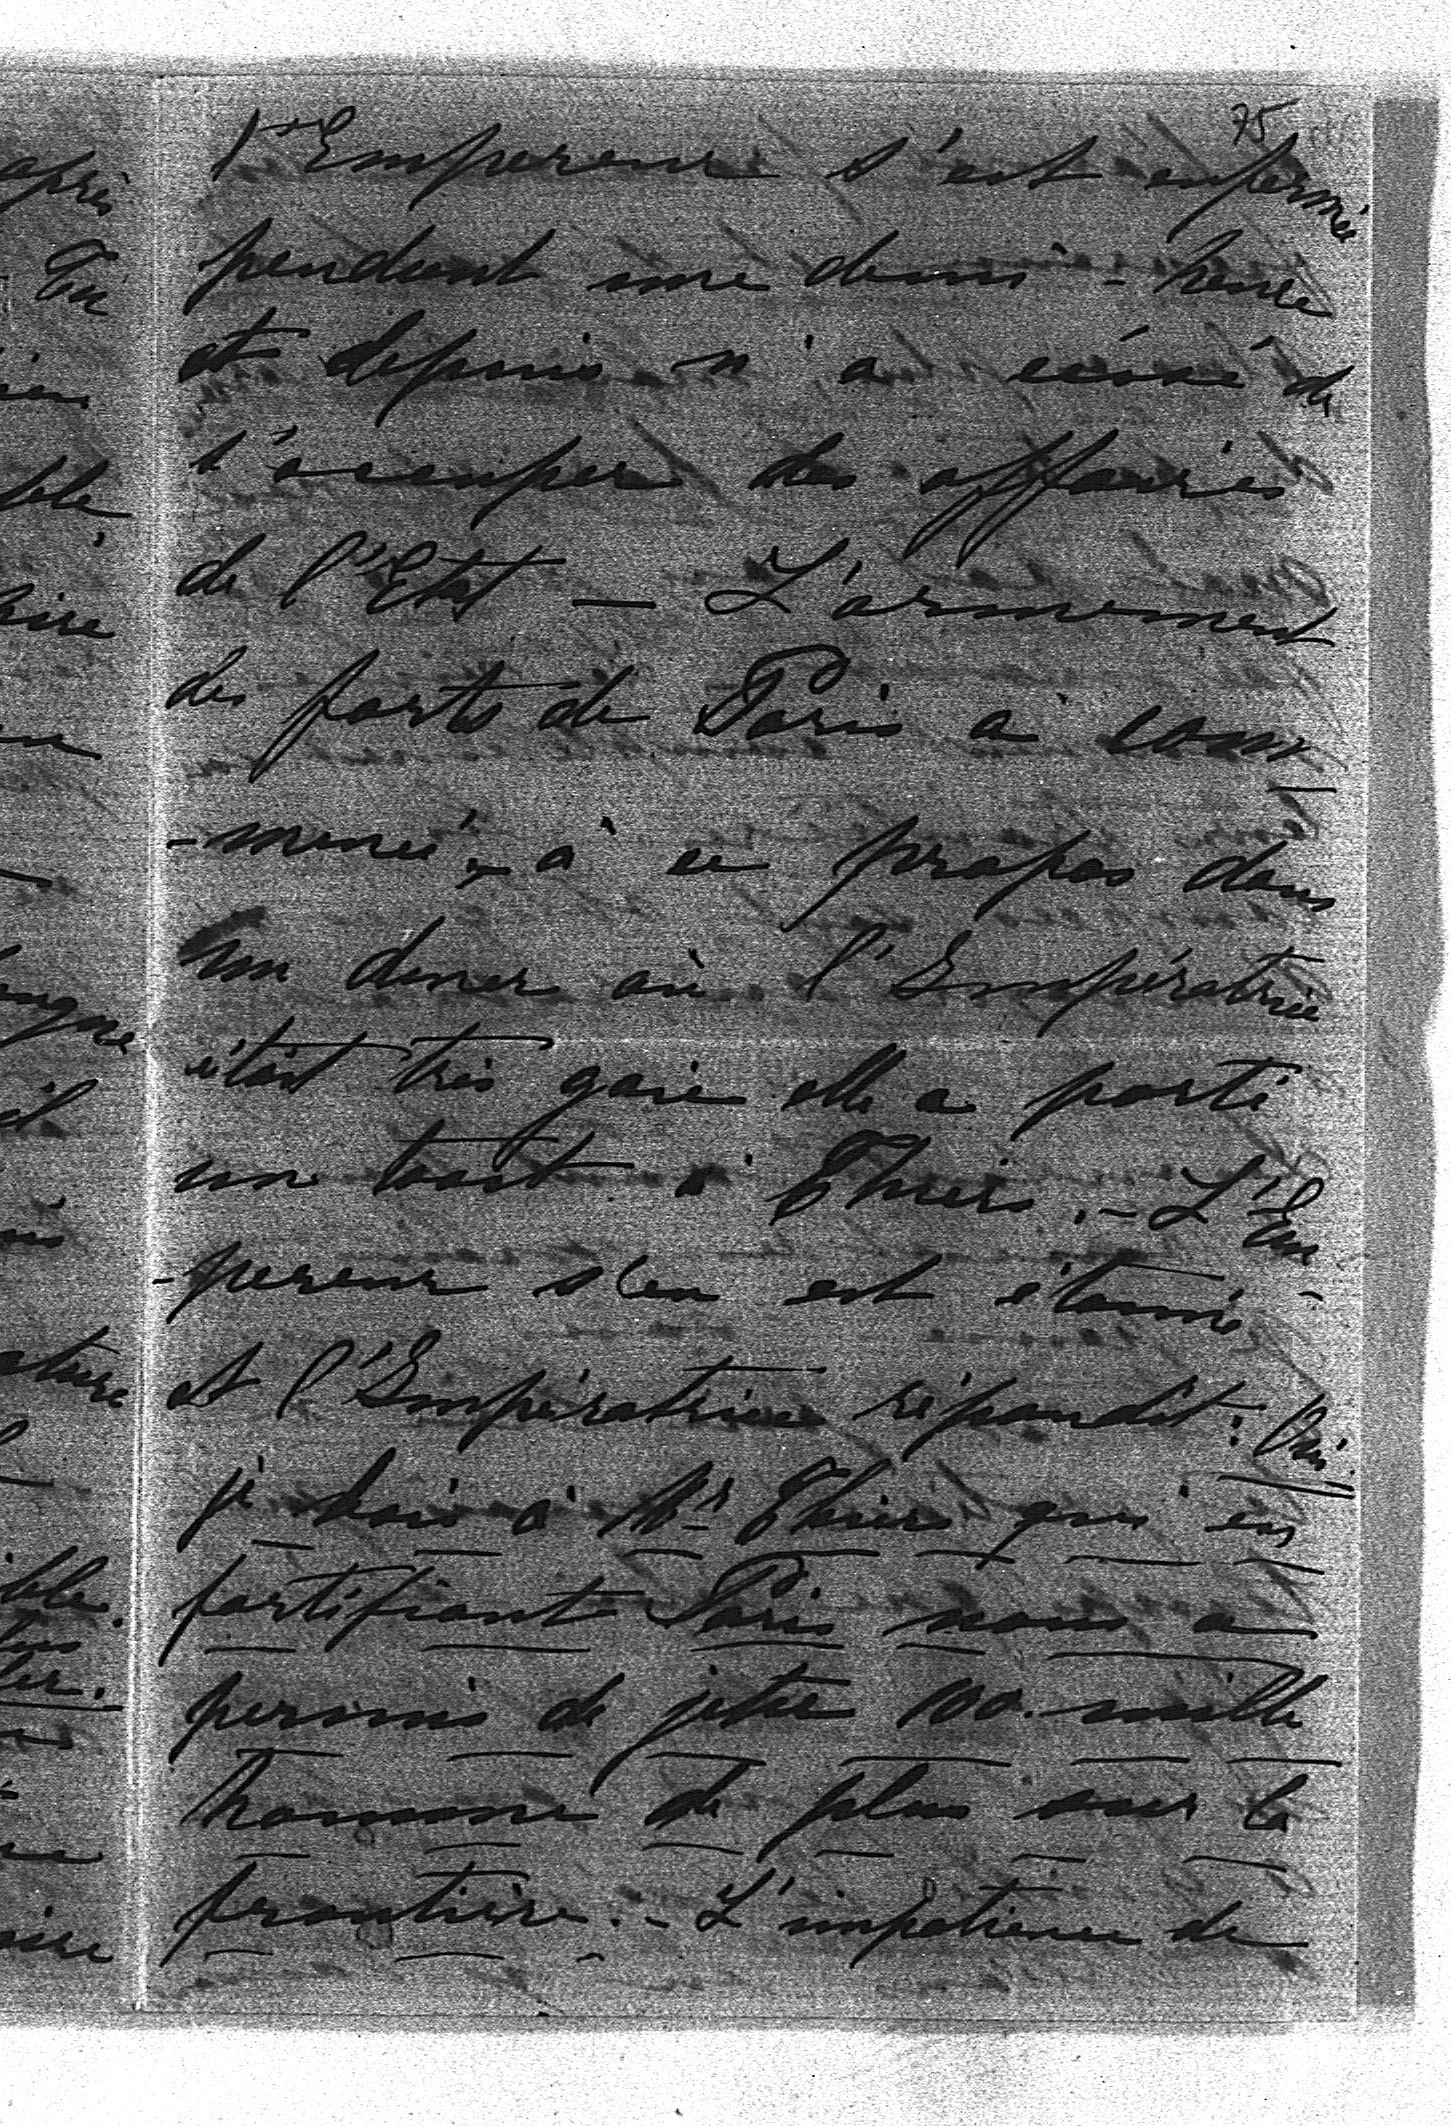 75
l'Empereur s'est enfermé
pendant une demi-heure
et depuis n'a cessé de
s'occuper des affaires
de l'Etat — L'armement
des forts de Paris a com-
-mencé, à ce propos dans
un diner où l'Impératrice
était très gaie elle a porté
un toast à Thiers. — L'Em-
-pereur s'en est étonné
et l'Impératrice répondit: Oui
je bois à Mr Thiers qui en
fortifiant Paris nous a
permis de jeter 100. mille
homme de plus sur la
frontière. — L'impatience de
après
Tu
ble,
aire
ature
ible.